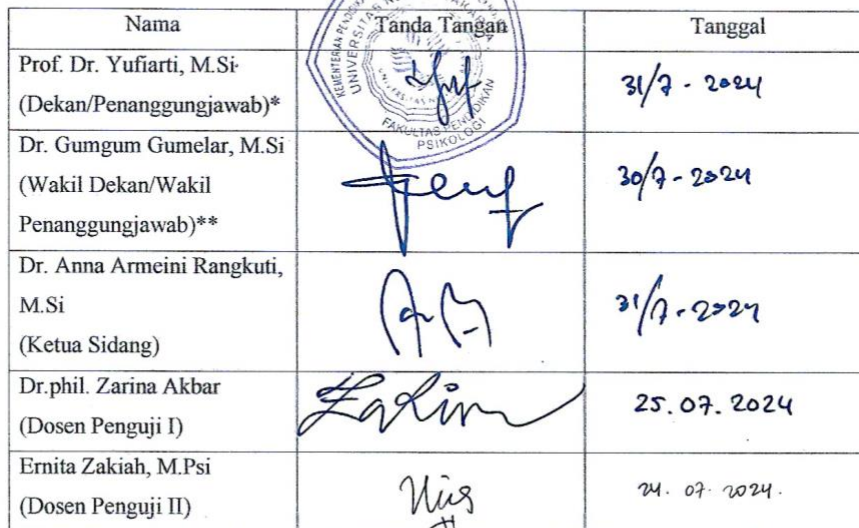 Nama Tanda Tangan Tanggal
Prof. Dr. Yufiarti, M.Si
(Dekan/Penanggungjawab)*
31/7 - 2024
Dr. Gumgum Gumelar, M.Si
(Wakil Dekan/Wakil
Penanggungjawab)**
30/7 - 2024
Dr. Anna Armeini Rangkuti,
M.Si
(Ketua Sidang)
31/7 - 2024
Dr.phil. Zarina Akbar
(Dosen Penguji I)
25.07.2024
Ernita Zakiah, M.Psi
(Dosen Penguji II)
24.07.2024.
UNIVERSITAS
FAKULTAS PENDIDIKAN
PSIKOLOGI